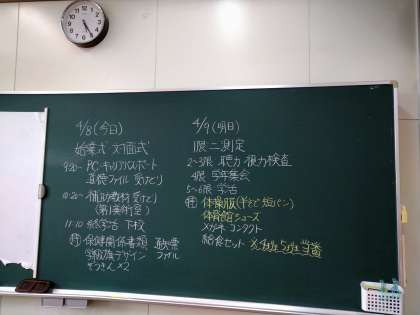 4/8(今日)
始業式 対面式
9:20~ PC・キャリアパスポート
ファイル 受けとり
10:20~ 補助教材受けとり
11:10 終学活 下校
持 保健関係書類
ファイル
ぞうきん×2
4/9(明日)
1限 二測定
2~3限 聴力・視力検査
4限 学年集会
5~6限 学活
持 体操服(半そで短パン)
体育館シューズ
メガネ コンタクト
給食セット
当番